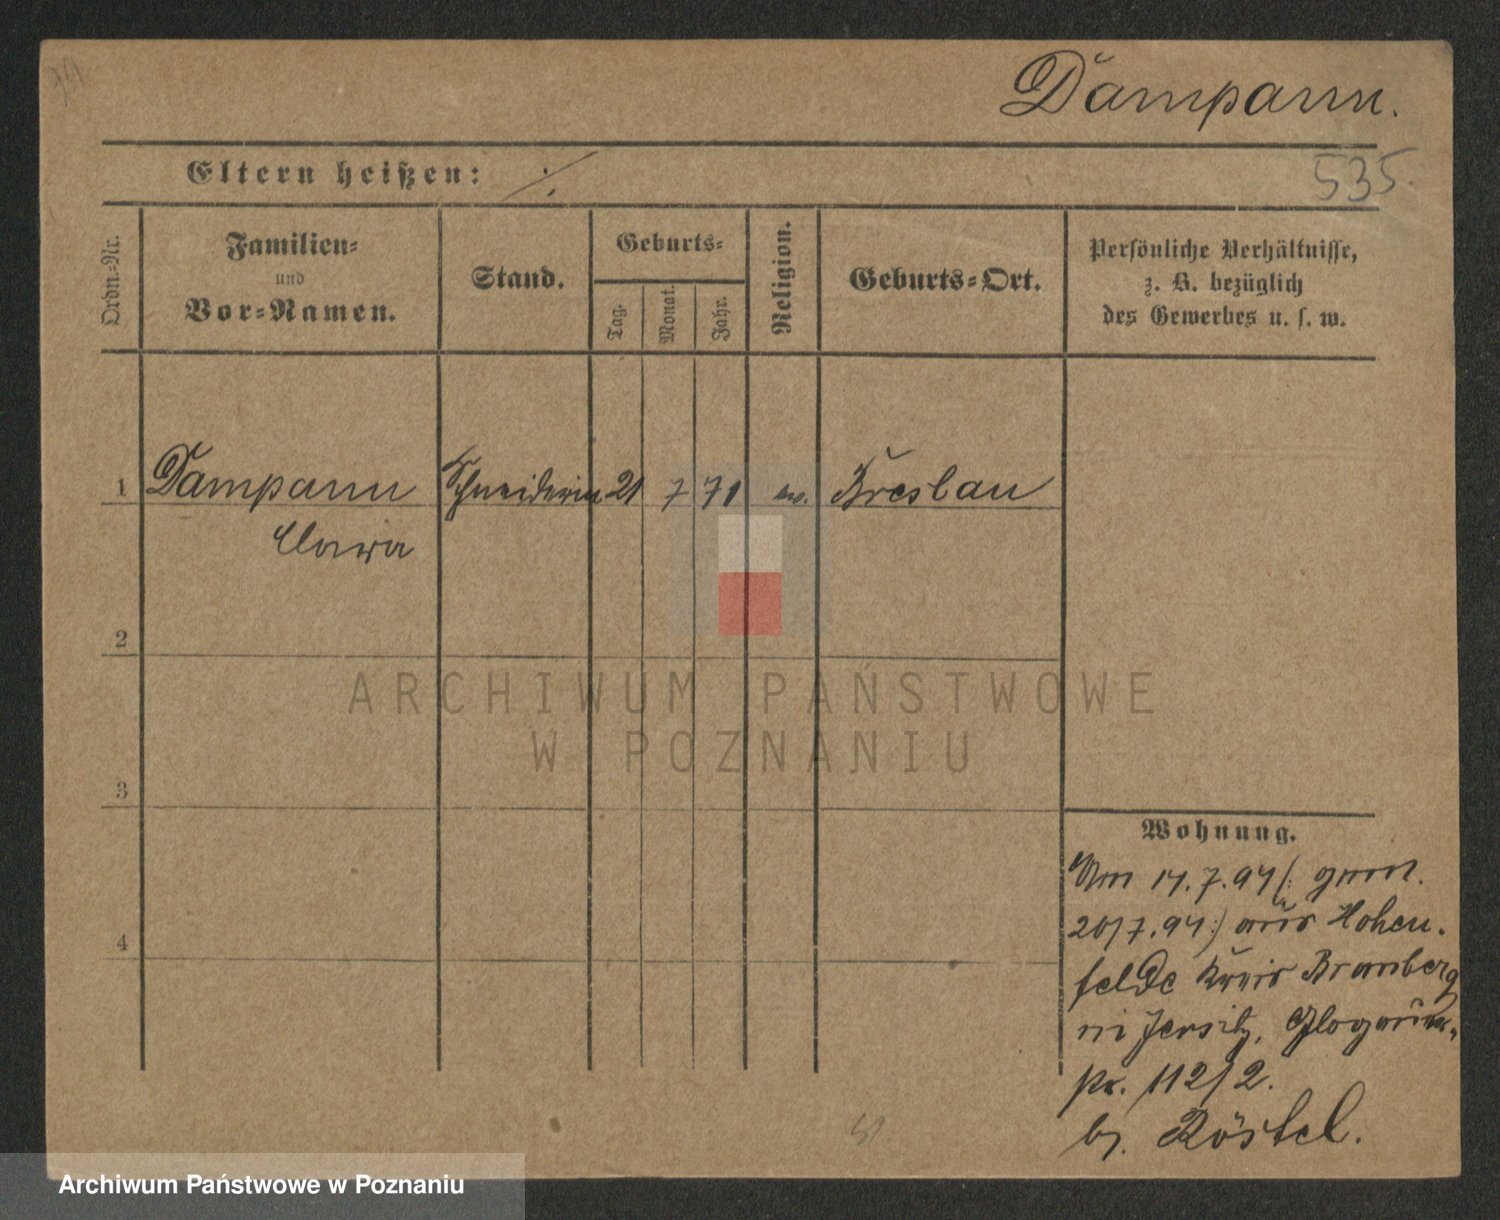 Dampann.
Eltern heißen: ./.
535
Ordn.-Nr.
Familien-
und
Vor-Namen.
Stand.
Geburts-
Tag.
Monat.
Jahr.
Religion.
Geburts-Ort.
Persönliche Verhältnisse,
z. B. bezüglich
des Gewerbes u. s. w.
1 Dampann Schneiderin 21 7 71 ev. Breslau
Clara
2
3
4
Wohnung.
Am 17.7.94 (: gem.
20/7.94 :) aus Hohen-
felde Kreis Bromberg
in Jersitz, Glogauer-
str. 112/2.
b. Röstel.
51
ARCHIWUM PAŃSTWOWE
W POZNANIU
Archiwum Państwowe w Poznaniu